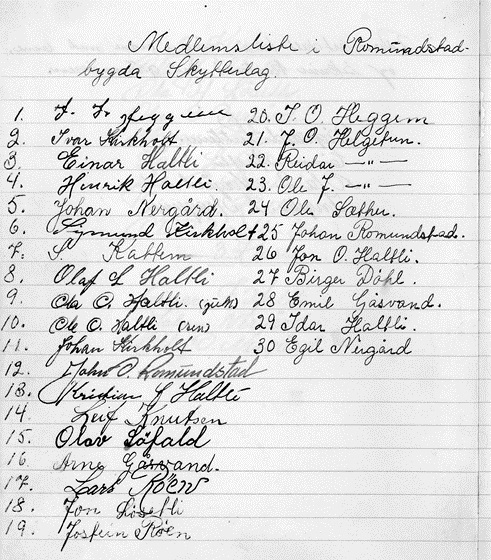 Medlemsliste i Romundstad-
bygda Skytterlag.
1. Heggem
2. Ivar Kirkholt
3. Einar Haltli
4. Henrik Haltli.
5. Johan Nergård.
6. Sigmund Kirkholt
7. S. Kattem
8. Olaf L Haltli
9. Ola O. Haltli.
10. Ole O. Haltli
11. Johan Kirkholt
12. John O. Romundstad
13. Kristian Haltli
14. Leif Knutsen
15. Olav Løfald
16. Arne Gåsvand.
17. Lars Røen
18. Jon
19. Jostein Røen
20. I. O. Heggem
21. J. O. Helgetun.
22. Reidar —"—
23. Ole J. —"—
24 Ole Sæther.
25 Johan Romundstad.
26 Jon O. Haltli.
27 Birger Døhl.
28 Emil Gåsvand.
29 Idar Haltli.
30 Egil Nergård